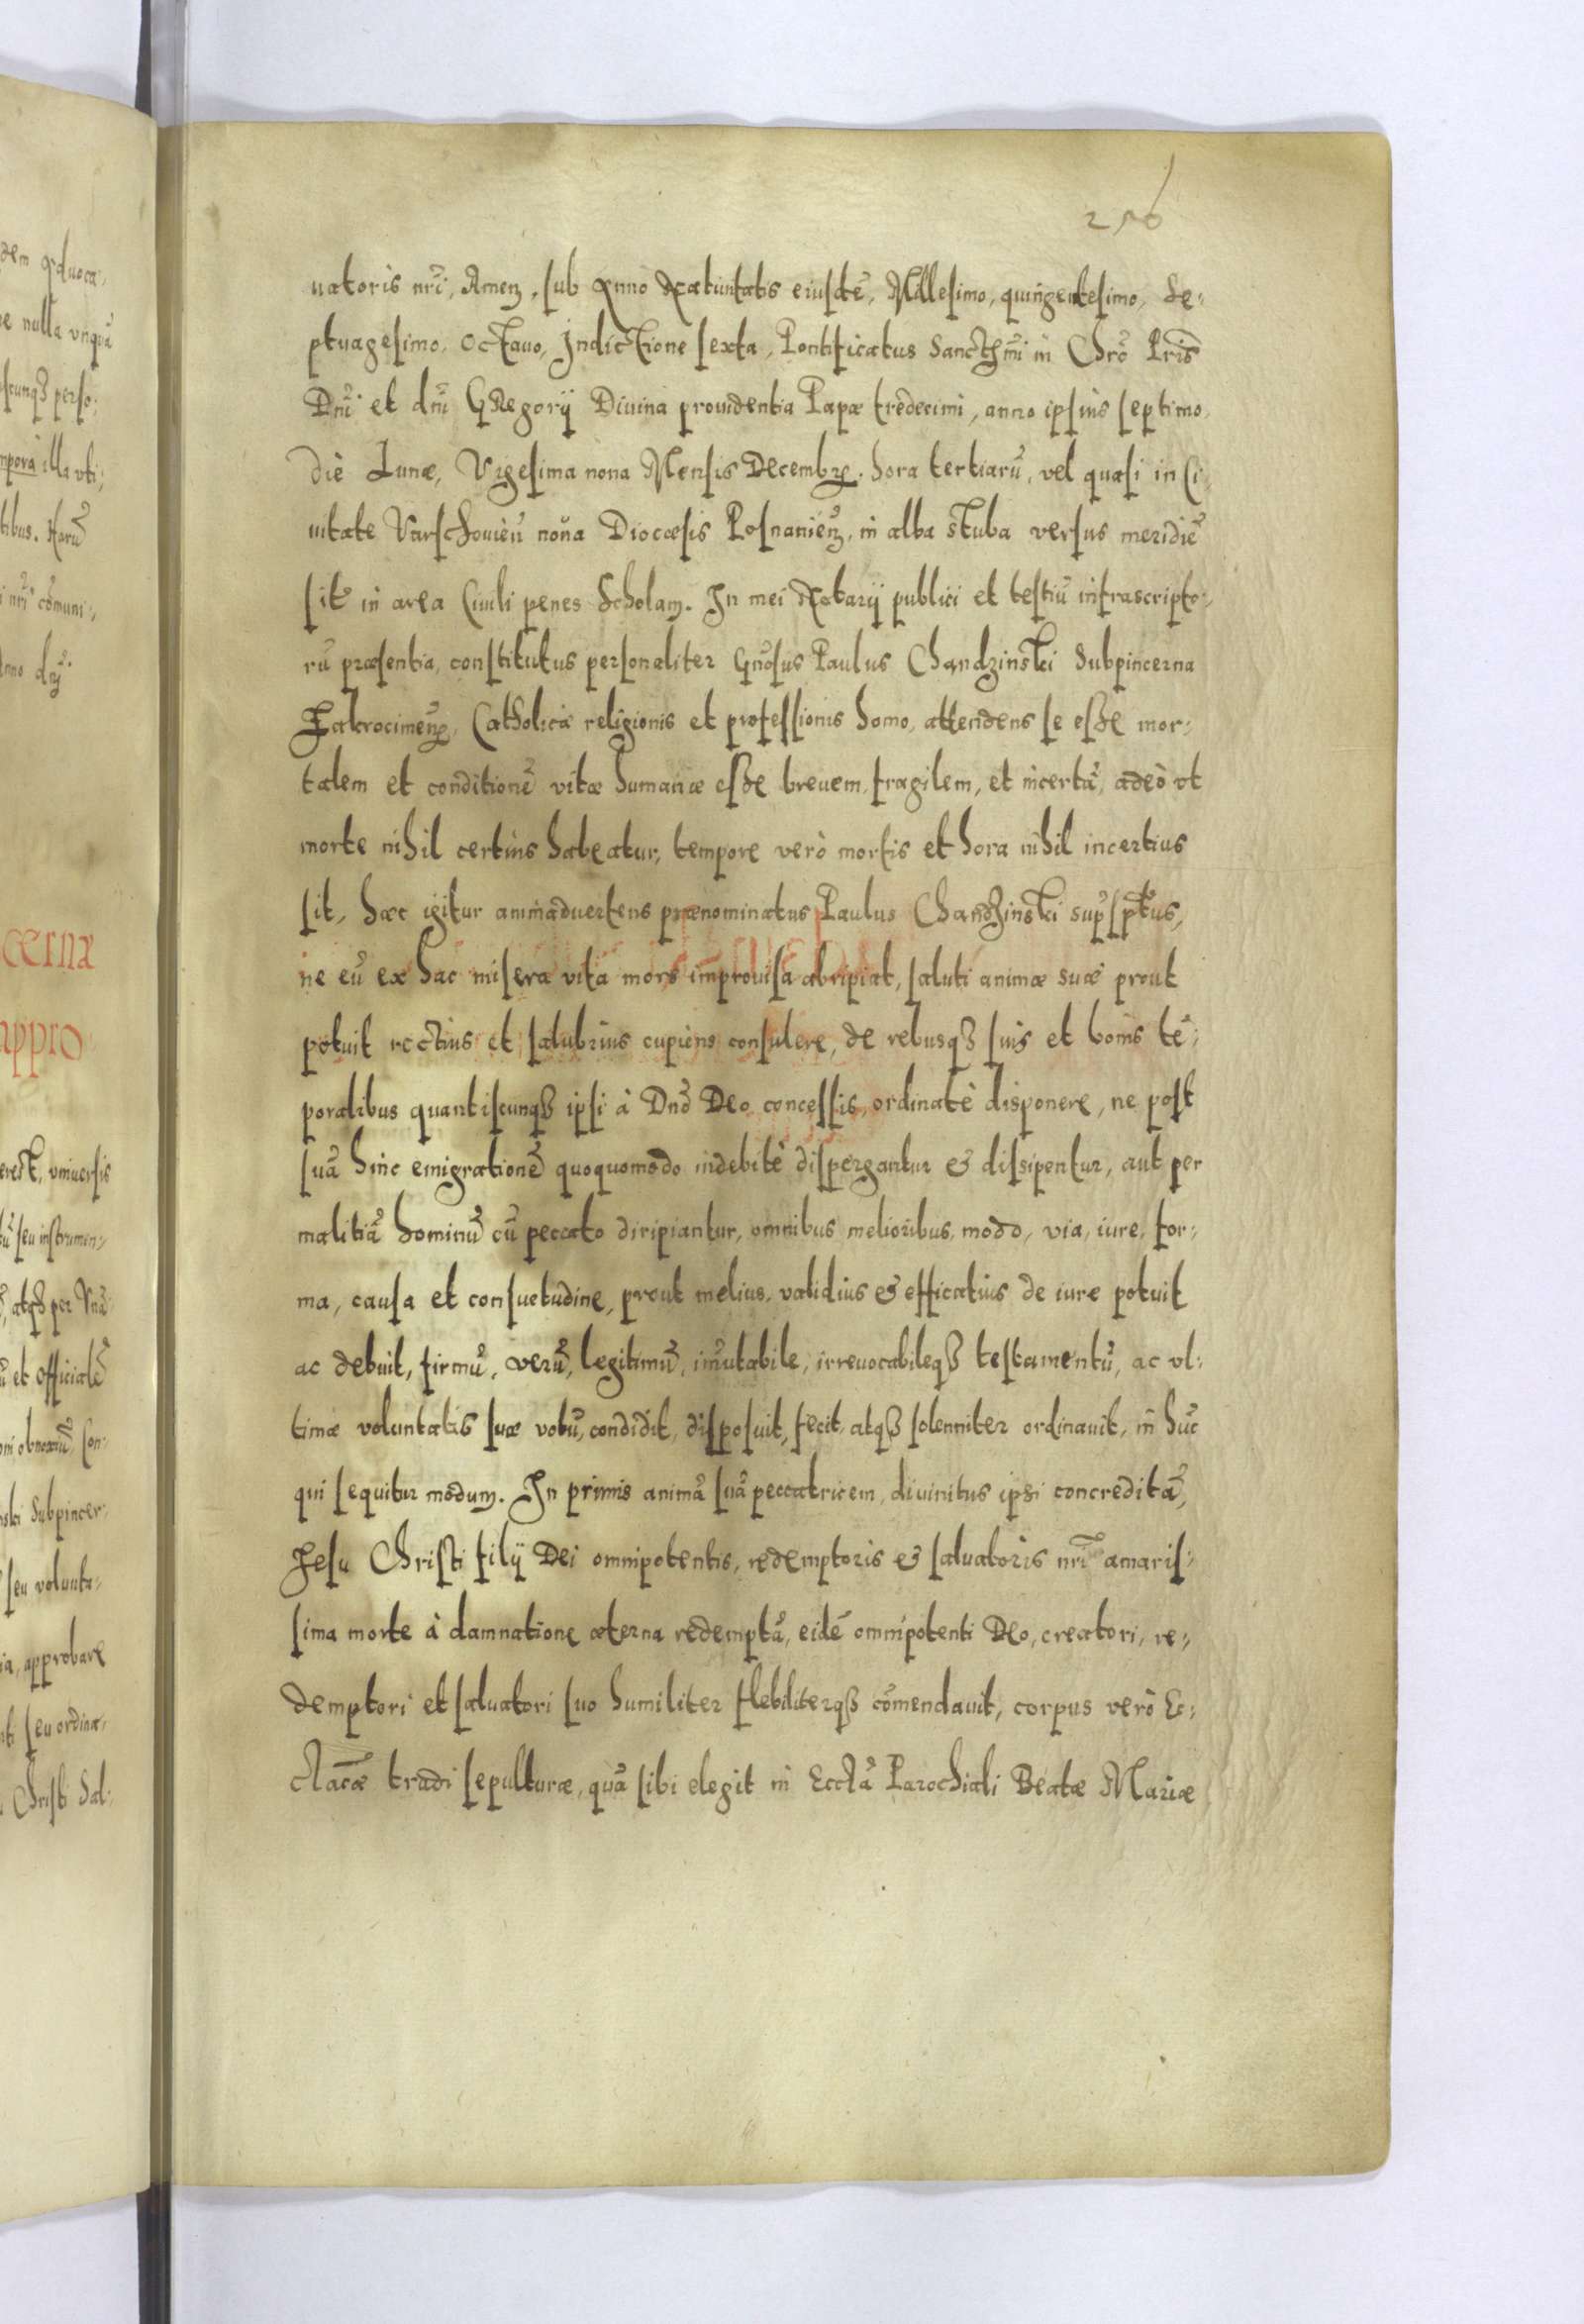 uatoris nrī, Amen, sub Anno Natiuitatis eiusdē, Millesimo, quingentesimo, Se-
ptuagesimo, Octauo, Indictione sexta, Pontificatus Sanctissmi in Chrō Pris
Dnī et dnī Gregorij Diuina prouidentia Papæ tredecimi, anno ipsius septimo,
die Lunæ, Vigesima nona Mensis Decembr. hora tertiarū, vel quasi in Ci-
uitate Varschouień noua Diocæsis Posnanień, in alba stuba versus meridiē
sit̄ in area Ciuili penes Scholam. In mei Notarij publici et testiū infrascripto-
rū præsentia, constitutus personaliter Gnōsus Paulus Chandzinski Subpincerna
Zakrocimeń, Catholicæ religionis et professionis homo, attendens se esse mor-
talem et conditionē vitæ humanæ esse breuem, fragilem, et incertā, adeò vt
morte nihil certius habeatur, tempore verò mortis et hora nihil incertius
sit, hæc igitur animaduertens prænominatus Paulus Chandzinski supsptus,
ne eū ex hac misera vita mors improuisa abripiat, saluti animæ suæ prout
potuit rectius et salubrius cupiens consulere, de rebusq3 suis et bonis tē-
poralibus quantiscunq3 ipsi à Dnō Deo concessis, ordinatè disponere, ne post
suā hinc emigrationē quoquomodo indebitè dispergantur & dissipentur, aut per
malitiā hominū cū peccato diripiantur, omnibus melioribus, modo, via, iure, for-
ma, causa et consuetudine, prout melius, validius & efficatius de iure potuit
ac debuit, firmū, verū, legitimū, im̄utabile, irreuocabileq3 testamentū, ac vl-
timæ voluntatis suæ votū, condidit, disposuit, fecit, atq3 solenniter ordinauit, in hūc
qui sequitur modum. In primis animā suā peccatricem, diuinitus ipsi concreditā,
Jesu Christi filij Dei omnipotentis, redemptoris & saluatoris nrī amaris-
sima morte à damnatione æterna redemptā, eidē omnipotenti Deo, creatori, re-
demptori et saluatori suo humiliter flebiliterq3 cōmendauit, corpus verò Ec-
cłiacæ tradi sepulturæ, quā sibi elegit in Eccłā Parochiali Beatæ Mariæ